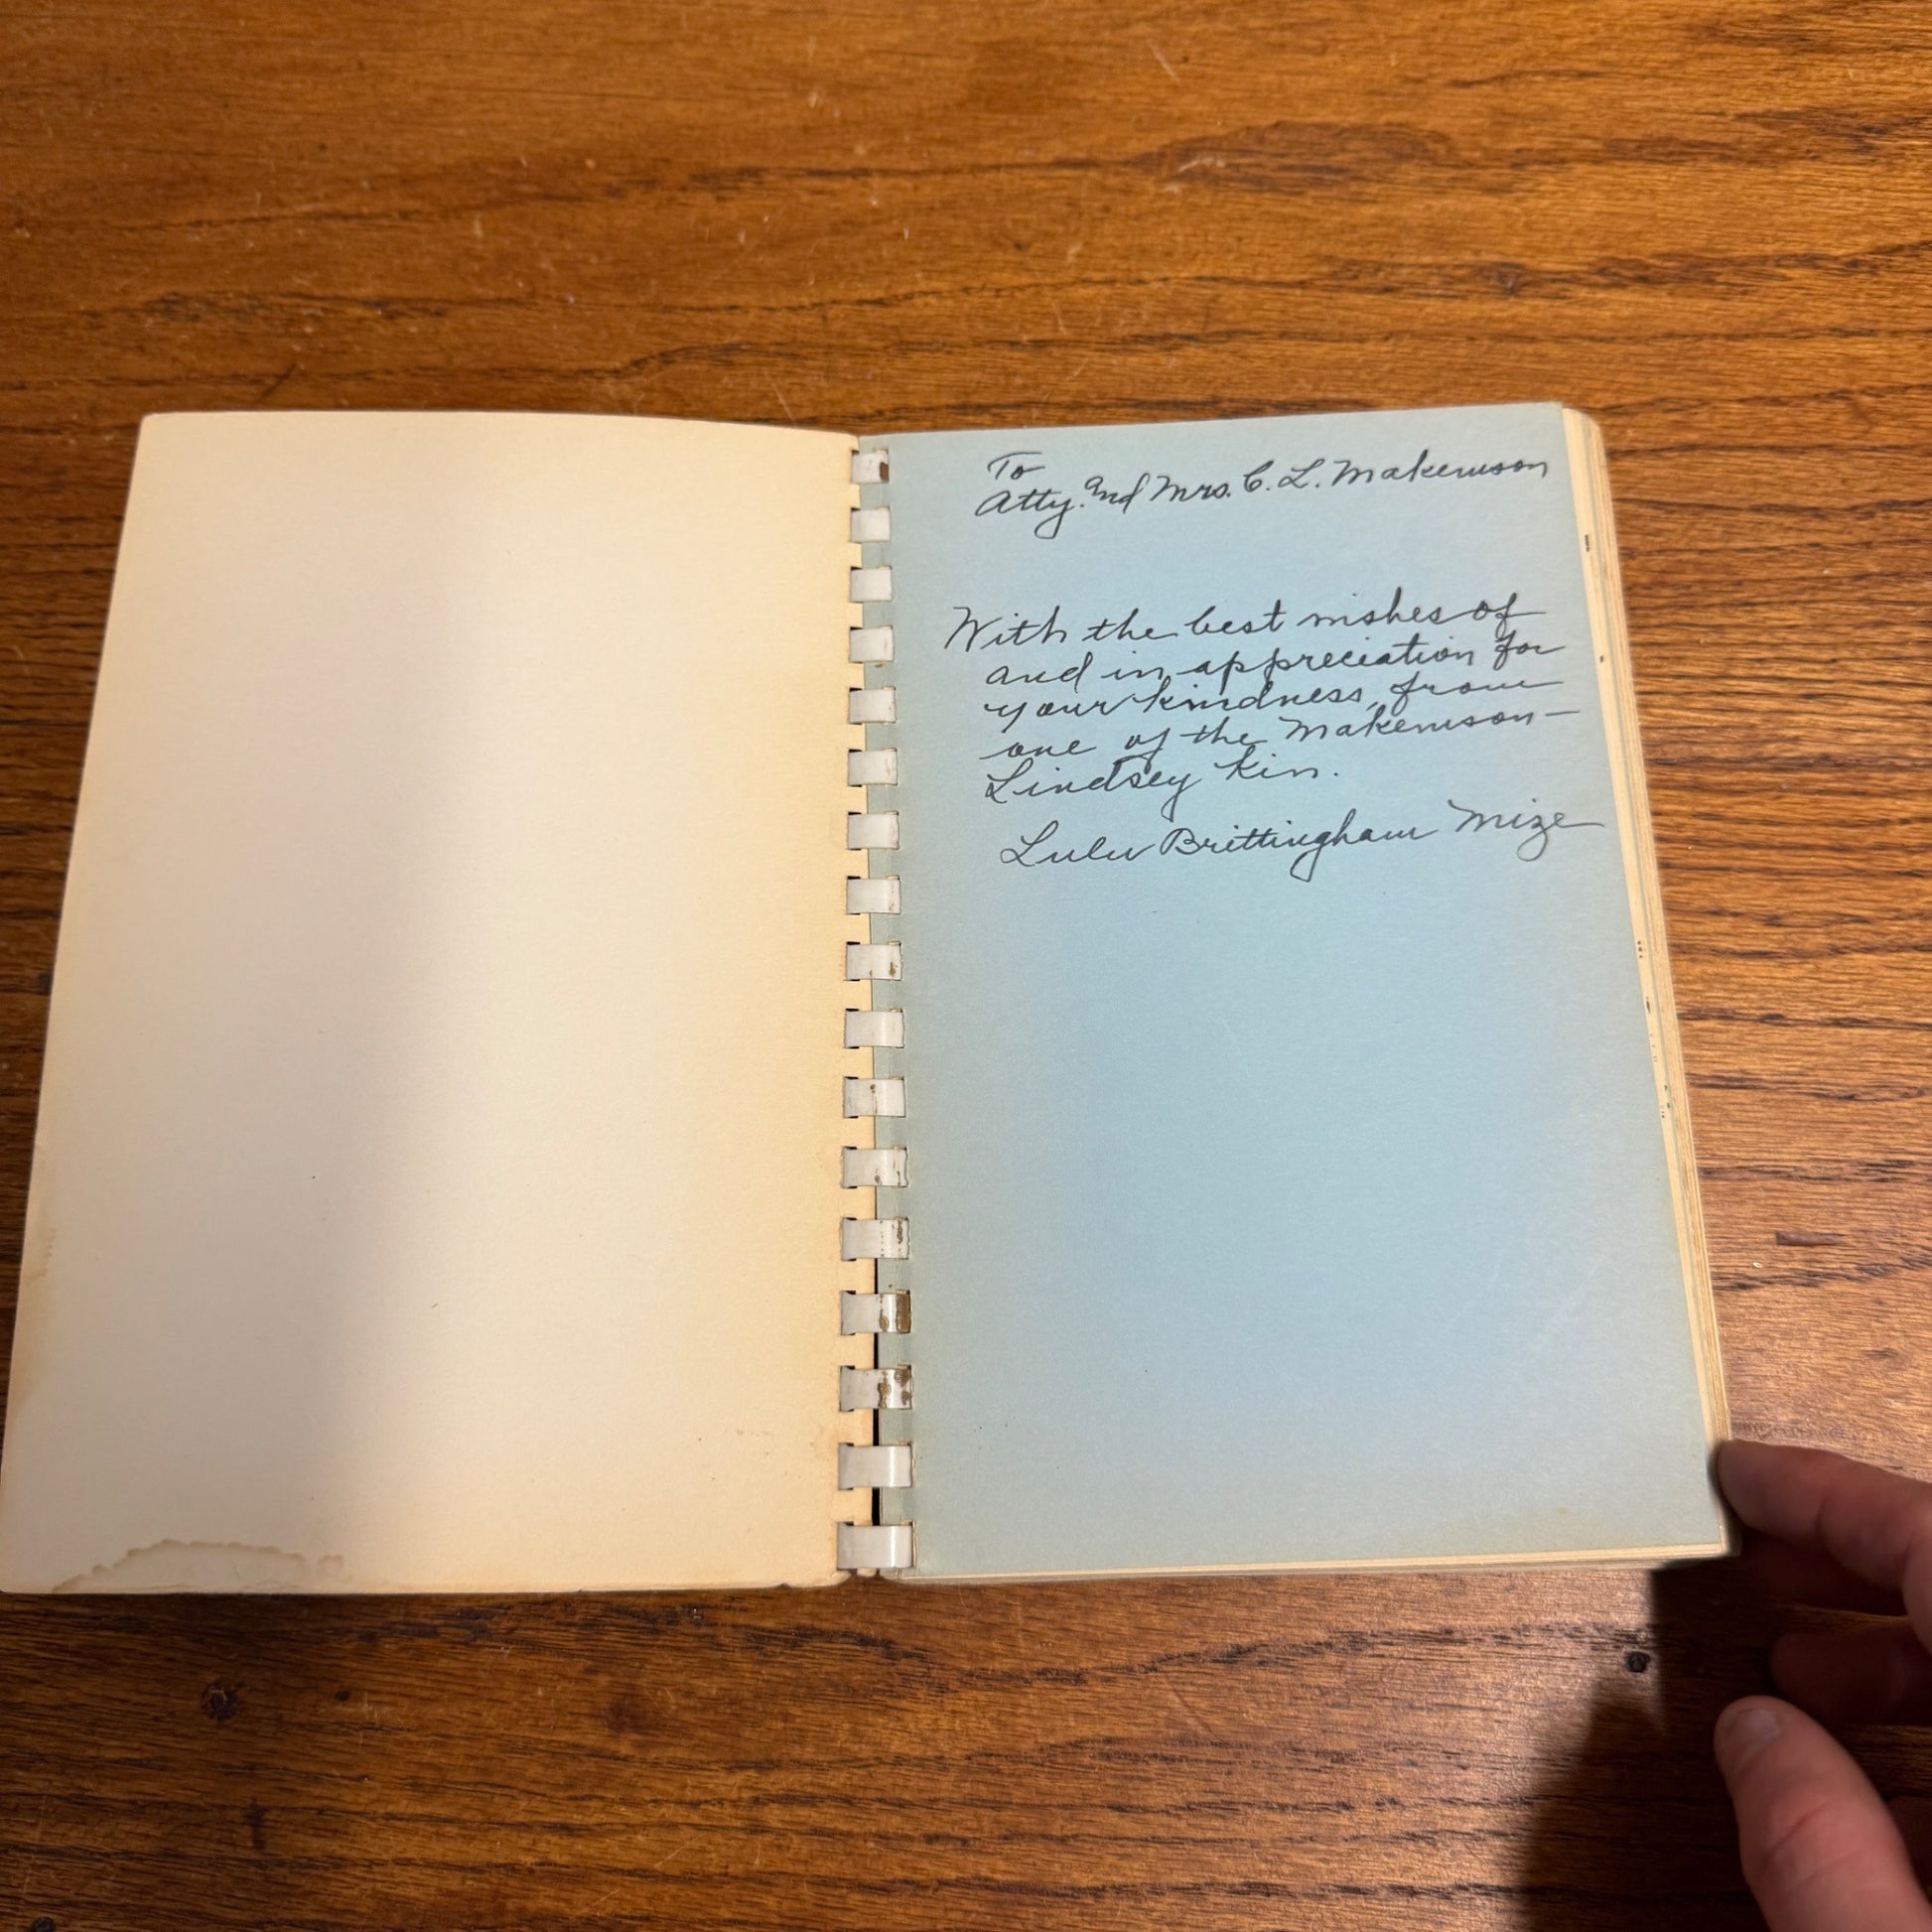 To
Atty. and Mrs. C. L. Makemson
With the best wishes of
and in appreciation for
your kindness, from
one of the Makemson-
Lindsey kin.
Lulu Brittingham Mize